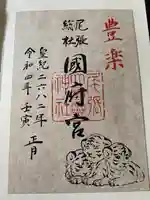 豊楽
尾張
総社
國府宮
皇紀二六八二年
令和四年壬寅 正月